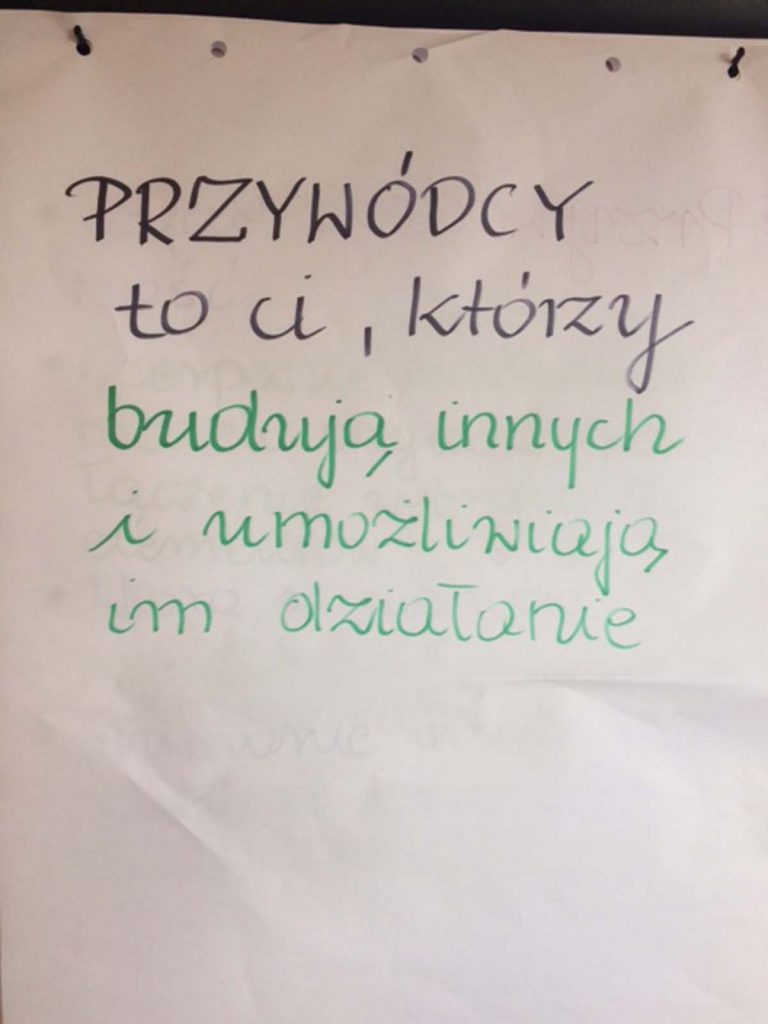 PRZYWÓDCY
to ci, którzy
budują innych
i umożliwiają
im działanie